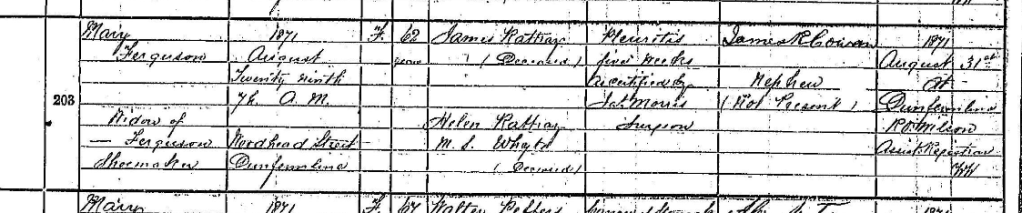 203
Mary
Ferguson
Widow of
— Ferguson
Shoemaker
1871
August
Twenty ninth
7h. A. M.
Woodhead Street
Dunfermline
F.
62
years
James Rattray
(Deceased)
Helen Rattray
M.S. Whyte
(Deceased)
Pleuritis
five weeks
As certified by
Jas Morris
Surgeon
James R Cowan
Nephew
(Not Present)
1871
August 31st
At
Dunfermline
Assist Registrar
Mary
1871
F.
67
Walter